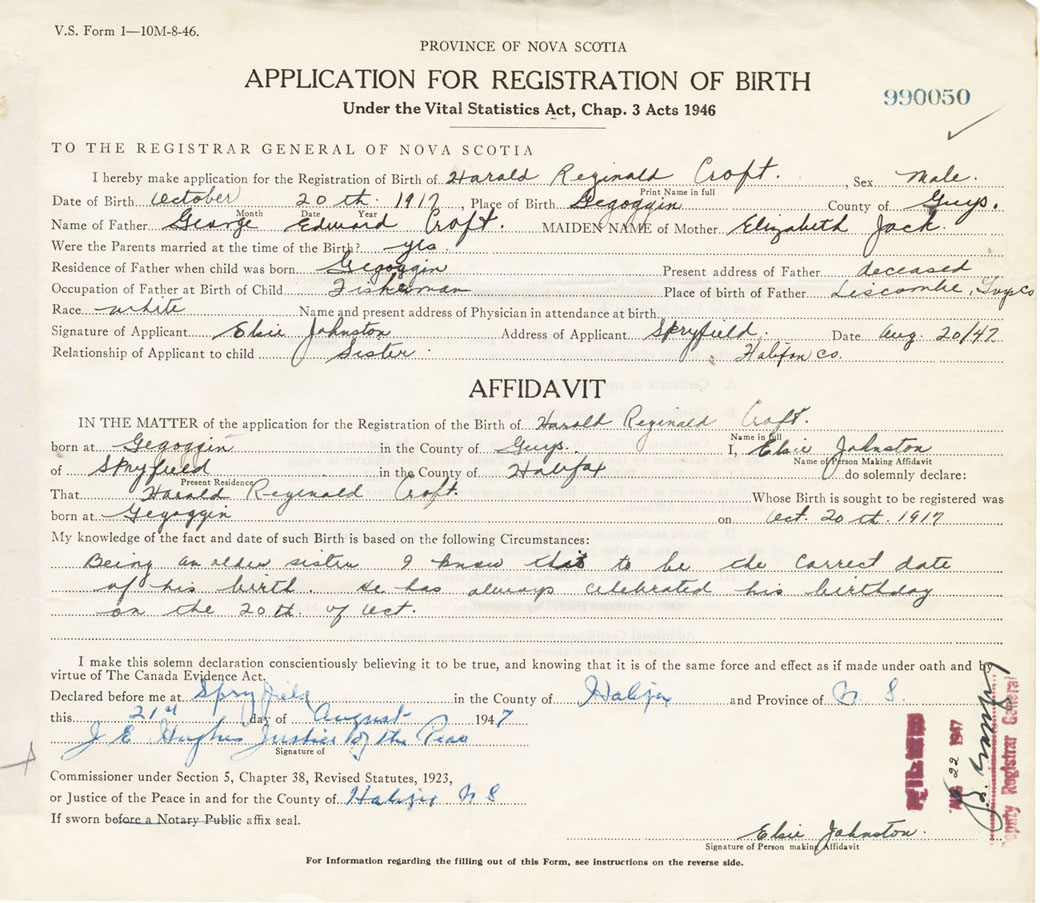 V.S. Form 1—10M-8-46.
PROVINCE OF NOVA SCOTIA
APPLICATION FOR REGISTRATION OF BIRTH
990050
Under the Vital Statistics Act, Chap. 3 Acts 1946
TO THE REGISTRAR GENERAL OF NOVA SCOTIA
I hereby make application for the Registration of Birth of Harald Reginald Croft. , Sex Male.
Print Name in full
Date of Birth October 20 th. 1917 , Place of Birth Gegoggin County of Guys.
Month Date Year
Name of Father George Edward Croft. MAIDEN NAME of Mother Elizabeth Jack.
Were the Parents married at the time of the Birth? yes
Residence of Father when child was born Gegoggin Present address of Father deceased
Occupation of Father at Birth of Child Fisherman Place of birth of Father Liscombe, Guys Co
Race white Name and present address of Physician in attendance at birth
Signature of Applicant Elsie Johnston Address of Applicant Spryfield. Date Aug. 20/47
Relationship of Applicant to child Sister. Halifax co.
AFFIDAVIT
IN THE MATTER of the application for the Registration of the Birth of Harald Reginald Croft.
Name in full
born at Gegoggin in the County of Guys. I, Elsie Johnston
Name of Person Making Affidavit
of Spryfield in the County of Halifax do solemnly declare:
Present Residence
That Harald Reginald Croft. Whose Birth is sought to be registered was
born at Gegoggin on Oct. 20 th. 1917
My knowledge of the fact and date of such Birth is based on the following Circumstances:
Being an older sister I know this to be the correct date
of his birth. He has always celebrated his birthday
on the 20th. of Oct.
I make this solemn declaration conscientiously believing it to be true, and knowing that it is of the same force and effect as if made under oath and by
virtue of The Canada Evidence Act.
Declared before me at Spryfield in the County of Halifax and Province of N S.
this 21st day of August 1947
J E Hughes Justice of the Peace
Signature of
Commissioner under Section 5, Chapter 38, Revised Statutes, 1923,
or Justice of the Peace in and for the County of Halifax N S
If sworn before a Notary Public affix seal.
Elsie Johnston.
Signature of Person making Affidavit
For Information regarding the filling out of this Form, see instructions on the reverse side.
FILED
AUG 22 1947
Deputy Registrar General